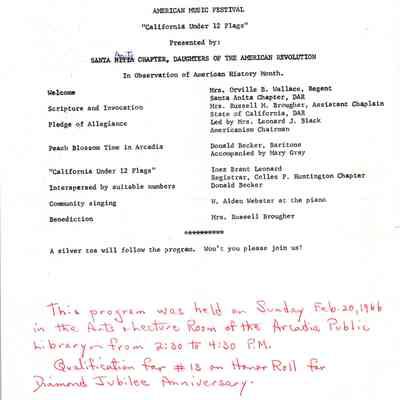 AMERICAN MUSIC FESTIVAL
"California Under 12 Flags"
Presented by:
Anita
SANTA NITTA CHAPTER, DAUGHTERS OF THE AMERICAN REVOLUTION
In Observation of American History Month.
Welcome Mrs. Orville B. Wallace, Regent
Santa Anita Chapter, DAR
Scripture and Invocation Mrs. Russell M. Brougher, Assistant Chaplain
State of California, DAR
Pledge of Allegiance Led by Mrs. Leonard J. Black
Americanism Chairman
Peach Blossom Time in Arcadia Donald Becker, Baritone
Accompanied by Mary Gray
"California Under 12 Flags" Inez Brant Leonard
Registrar, Colles P. Huntington Chapter
Interspersed by suitable numbers Donald Becker
Community singing W. Alden Webster at the piano
Benediction Mrs. Russell Brougher
**********
A silver tea will follow the program. Won't you please join us!
This program was held on Sunday Feb. 20, 1966
in the Arts & Lecture Room of the Arcadia Public
Library on from 2:30 to 4:30 P.M.
Qualification for #13 on Honor Roll for
Diamond Jubilee Anniversary.